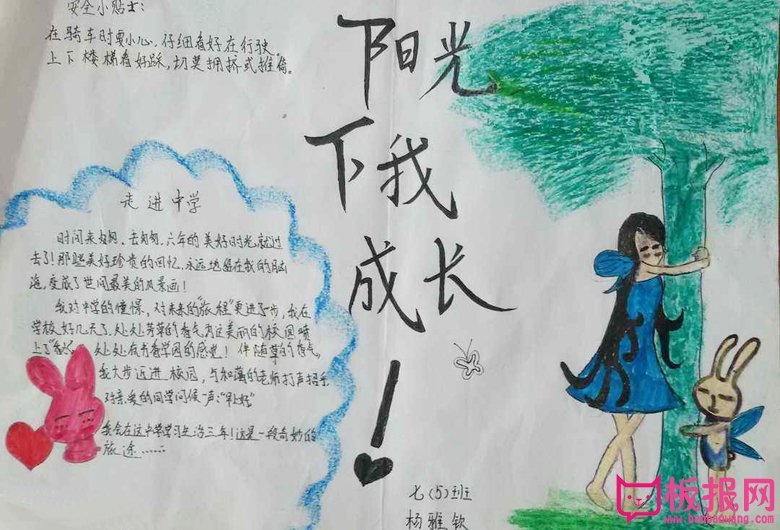 安全小贴士:
在骑车时要小心,仔细看好在行驶。
上下楼梯看好踩,切莫拥挤或推倚。
阳光
下我
成长
!
走进中学
时间来匆匆,去匆匆,六年的美好时光就过
去了!那些美好珍贵的回忆,永远地留在我的脑
海,变成了世间最美的风景画!
我对中学的憧憬,对未来的“旅程”更进了一步,我在
学校好几天了,处处芳草的香气为这美丽的校园喷
上了“香水”,处处在书香学园的感觉!伴随草的香气。
我大步迈进校园,与和蔼的老师打声招手
对亲爱的同学问候一声:“早上好”
我会在这中学学习生活三年!这是一段奇妙的
旅途……
七(5)班
杨雅钦
板报网
www.banbaowang.com